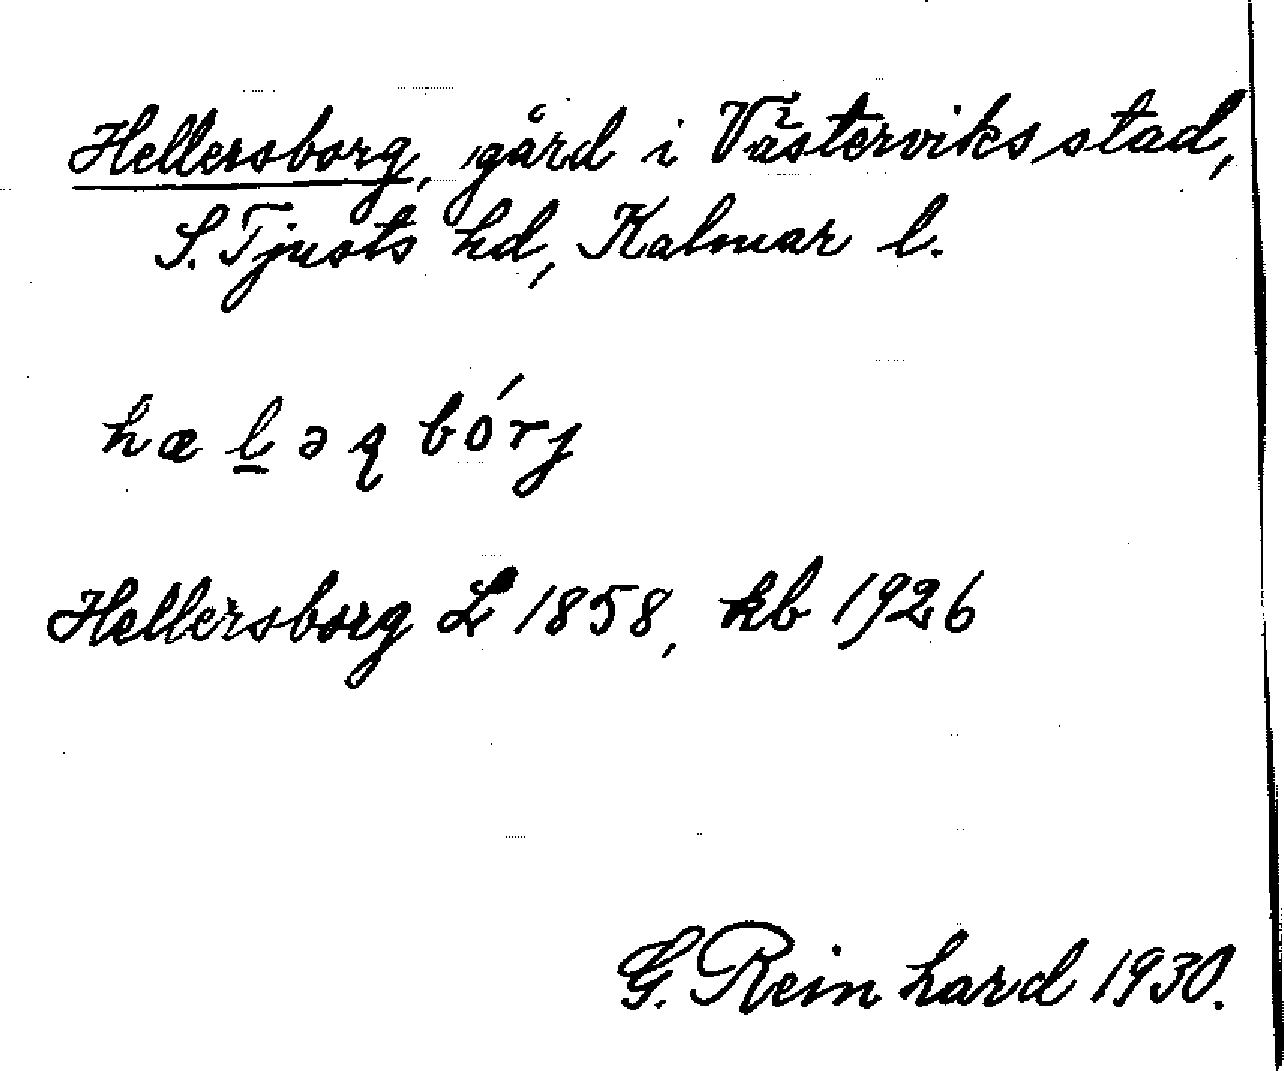 Hellersborg, gård i Västerviks stad,
S. Tjusts hd, Kalmar l.
hælәqbórj
Hellersborg L 1858, kb 1926
G. Reinhard 1930.